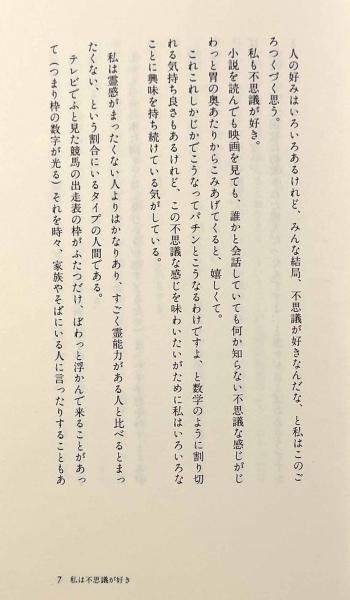 人の好みはいろいろあるけれど、みんな結局、不思議が好きなんだな、と私はこのご
ろつくづく思う。
私も不思議が好き。
小説を読んでも映画を見ても、誰かと会話していても何か知らない不思議な感じがじ
わっと胃の奥あたりからこみあげてくると、嬉しくて。
これこれしかじかでこうなってパチンとこうなるわけですよ、と数学のように割り切
れる気持ち良さもあるけれど、この不思議な感じを味わいたいがために私はいろいろな
ことに興味を持ち続けている気がしている。
私は霊感がまったくない人よりはかなりあり、すごく霊能力がある人と比べるとまっ
たくない、という割合にいるタイプの人間である。
テレビでふと見た競馬の出走表の枠がふたつだけ、ぼわっと浮かんで来ることがあっ
て（つまり枠の数字が光る）それを時々、家族やそばにいる人に言ったりすることもあ
7 私は不思議が好き